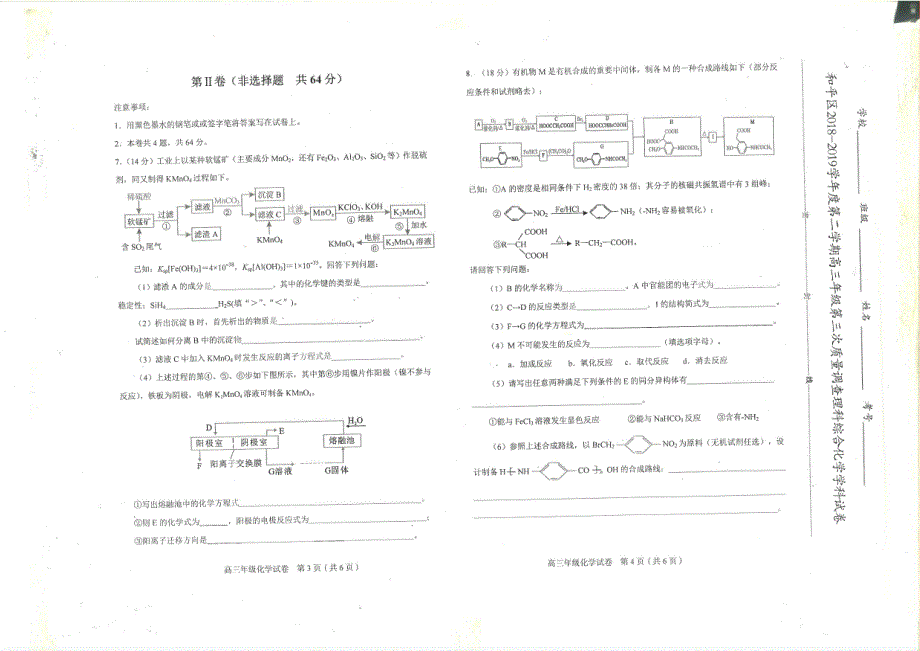 第Ⅱ卷（非选择题 共64分）
注意事项：
1．用黑色墨水的钢笔或或签字笔将答案写在试卷上。
2．本卷共4题，共64分。
7．(14分)工业上以某种软锰矿（主要成分MnO₂，还有Fe₂O₃、Al₂O₃、SiO₂等）作脱硫
剂，同又制得KMnO₄过程如下。
稀硫酸
软锰矿
含SO₂尾气
过滤
①
滤液
滤渣A
MnCO₃
②
沉淀B
滤液C
KMnO₄
过滤
③
MnOₓ
KClO₃、KOH
④熔融
K₂MnO₄
⑤加水
K₂MnO₄溶液
电解
⑥
KMnO₄
已知：Ksp[Fe(OH)₃]=4×10⁻³⁸，Ksp[Al(OH)₃]=1×10⁻³³，回答下列问题：
（1）滤渣A的成分是____，其中的化学键的类型是____
稳定性：SiH₄____H₂S(填“＞”、“＜”)。
（2）析出沉淀B时，首先析出的物质是____
试简述如何分离B中的沉淀物____
（3）滤液C中加入KMnO₄时发生反应的离子方程式是____
（4）上述过程的第④、⑤、⑥步如下图所示，其中第⑥步用镍片作阳极（镍不参与
反应），铁板为阴极，电解K₂MnO₄溶液可制备KMnO₄。
D
阳极室 阴极室
E
H₂O
熔融池
F
阳离子交换膜
G溶液
G固体
①写出熔融池中的化学方程式____。
②则E的化学式为____，阳极的电极反应为____；
③阳离子迁移方向是____。
高三年级化学试卷 第3页（共6页）
8．（18分）有机物M是有机合成的重要中间体，制备M的一种合成路线如下（部分反
应条件和试剂略去）：
A
O₂
催化剂△
B
O₂
催化剂△
C
HOOCCH₂COOH
Br₂
D
HOOCCHBrCOOH
E
CH₃O
NO₂
Fe/HCl
F
(CH₃CO)₂O
G
CH₃O
NHCOCH₃
H
COOH
NHCOCH₃
△
I
M
已知：①A的密度是相同条件下H₂密度的38倍；其分子的核磁共振氢谱中有3组峰；
②
NO₂
Fe/HCl
NH₂（-NH₂容易被氧化）；
③R－CH
COOH
COOH
△
R－CH₂－COOH。
请回答下列问题：
（1）B的化学名称为____，A中官能团的电子式为____。
（2）C→D的反应类型是____，I的结构简式为____。
（3）F→G的化学方程式为____。
（4）M不可能发生的反应为____（填选项字母）。
a．加成反应 b．氧化反应 c．取代反应 d．消去反应
（5）请写出任意两种满足下列条件的E的同分异构体有____
____。
①能与FeCl₃溶液发生显色反应 ②能与NaHCO₃反应 ③含有-NH₂
（6）参照上述合成路线，以BrCH₂
NO₂为原料（无机试剂任选），设
计制备H
NH
CO
OH的合成路线：____
____。
高三年级化学试卷 第4页（共6页）
密
封
线
学校
班级
姓名
考号
和平区2018-2019学年度第二学期高三年级第三次质量调查理科综合化学学科试卷